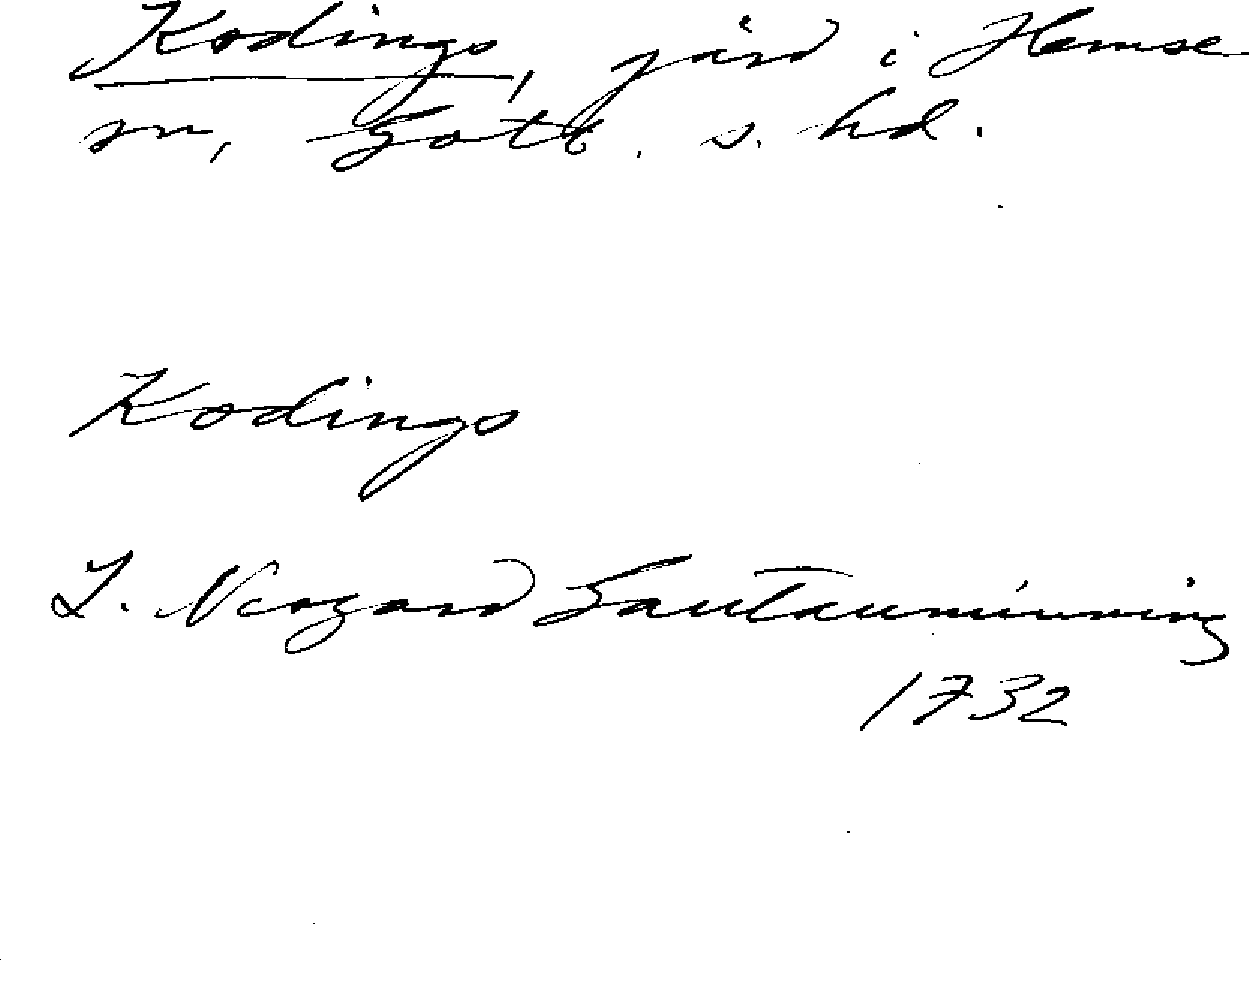 Kodings, gård i Hemse
sn, Gotl. s. hd.
Kodings
L. Neogard Gautauminning
1732